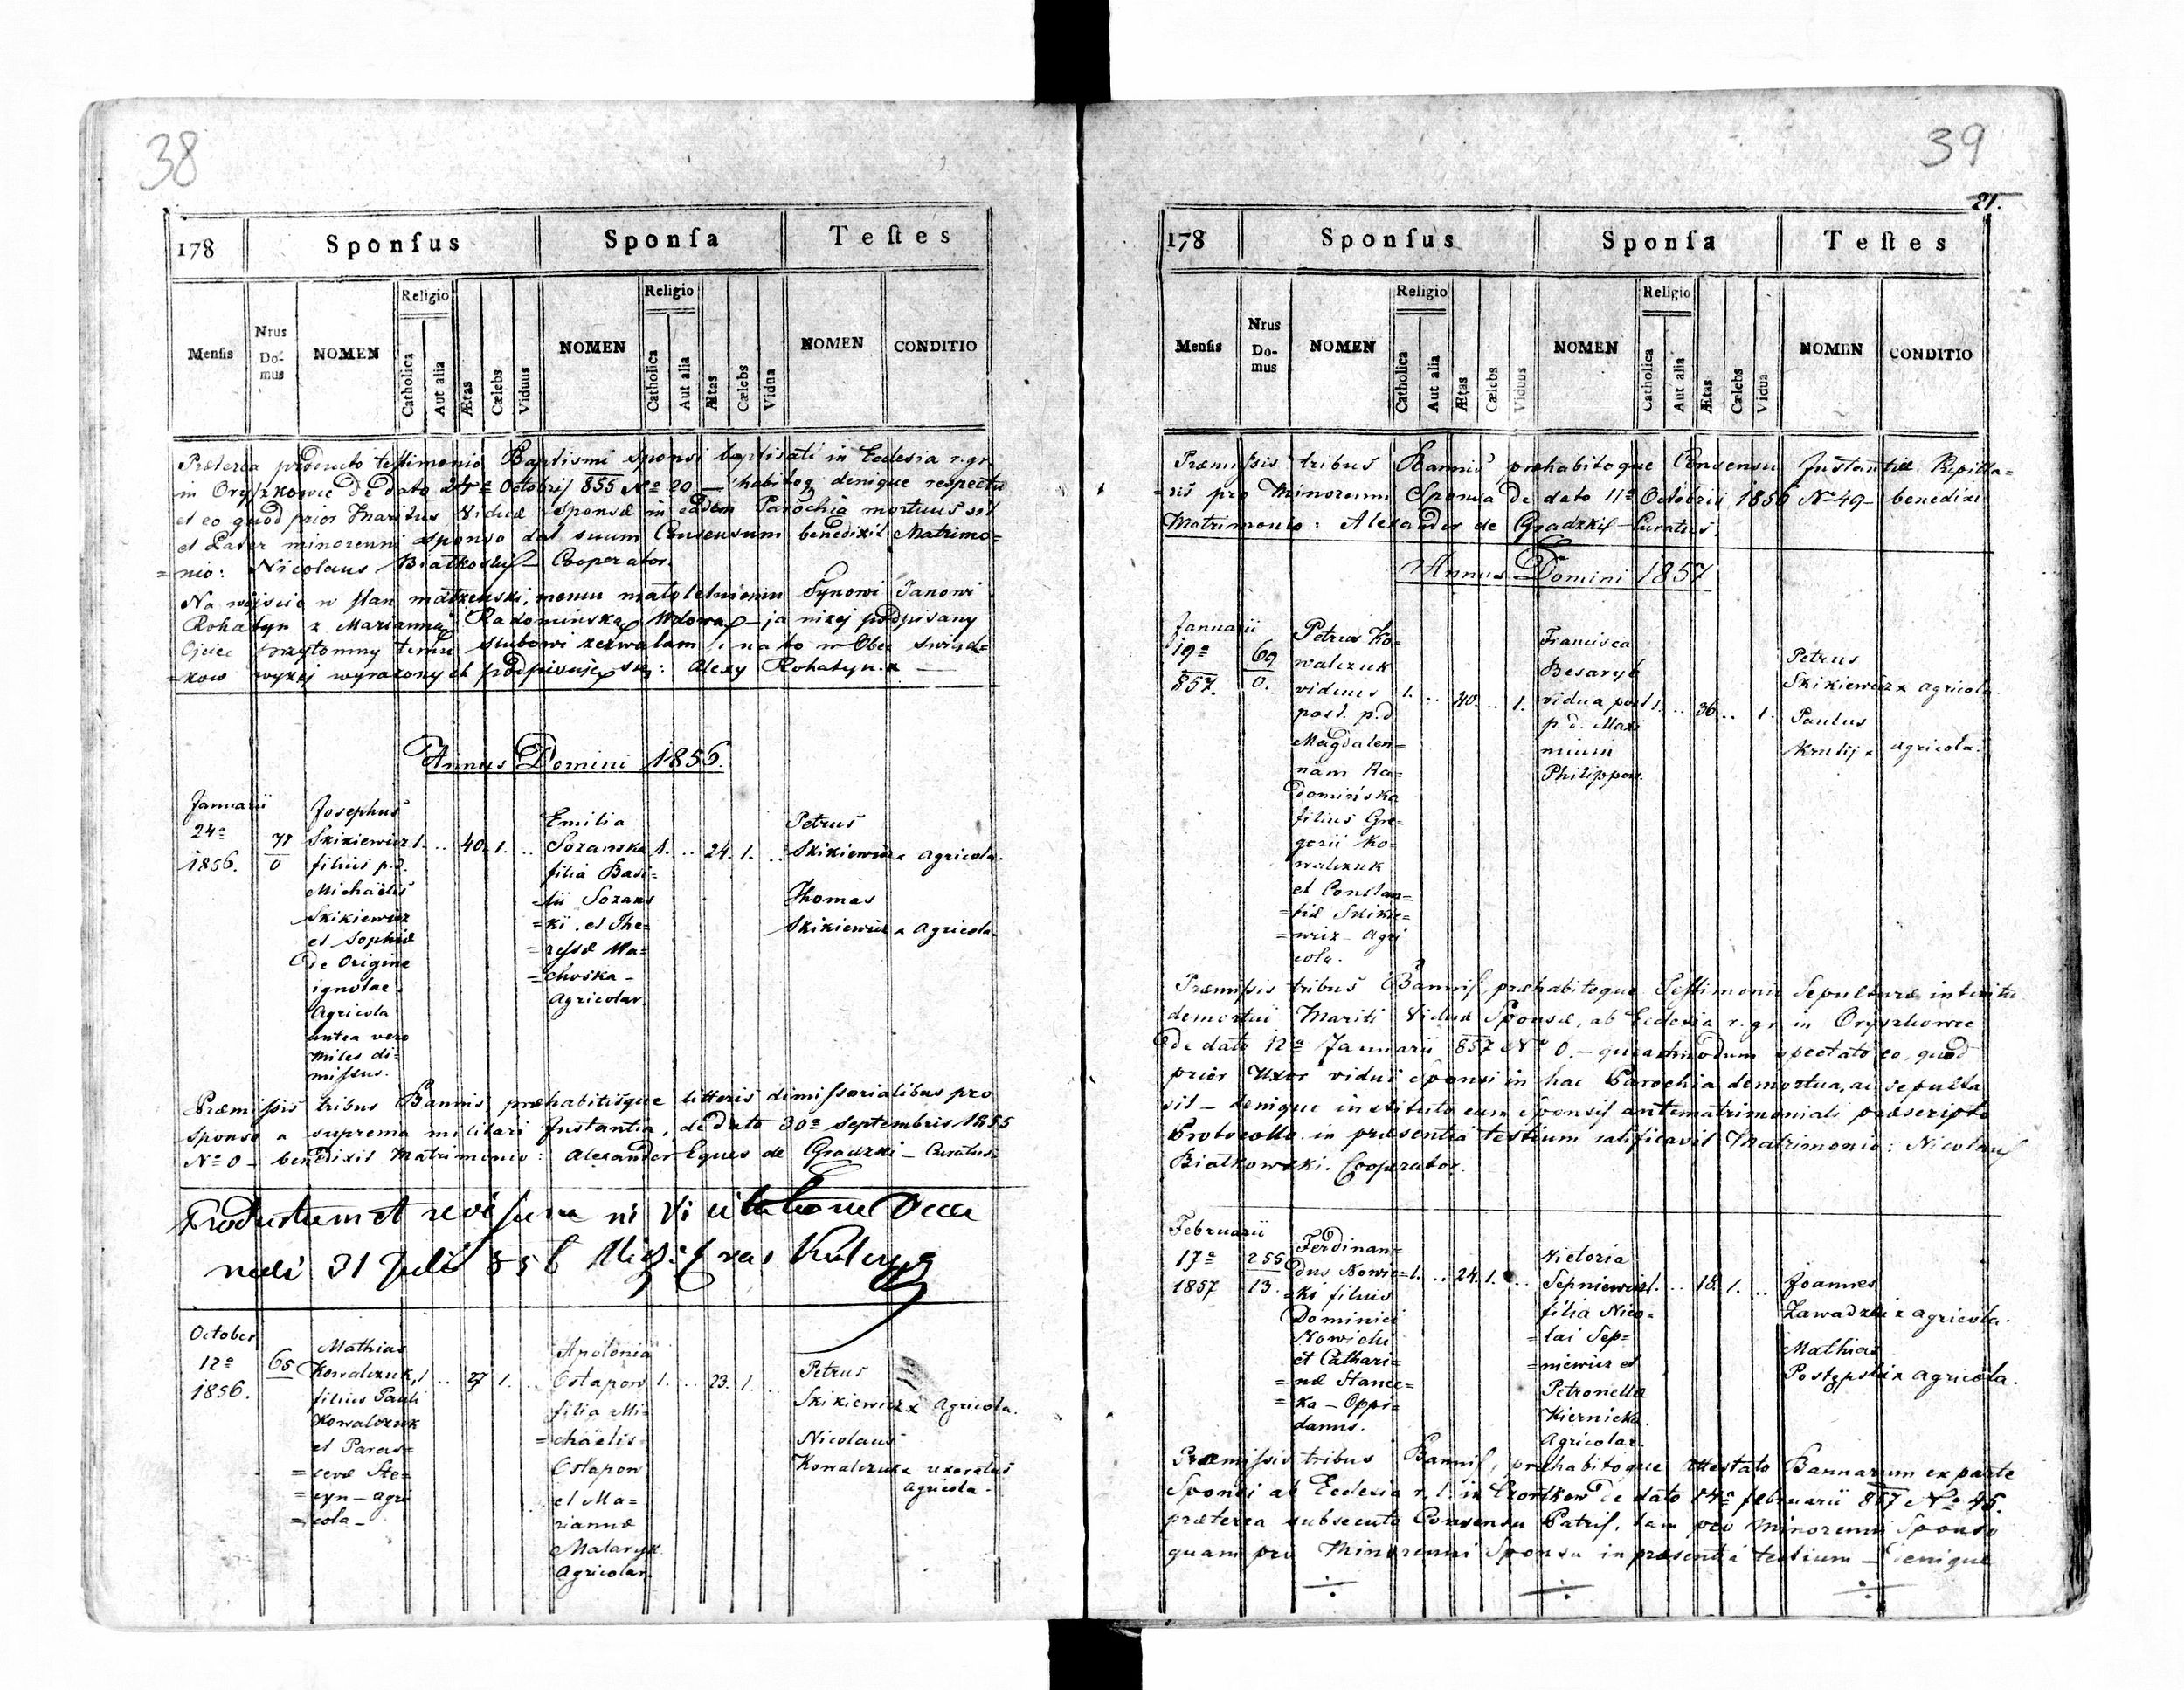 38
178 Sponſus Sponſa Teſtes
Menſis Nrus Do-mus NOMEN Religio Catholica Aut alia Ætas Cælebs Viduus NOMEN Religio Catholica Aut alia Ætas Cælebs Vidua NOMEN CONDITIO
Præterea producto testimonio Baptismi sponsi baptisati in Ecclesia r. gr.
in Oryszkowce de dato 24ª Octobris 855 Nº 20 — habitoq denique respectu
et eo quod prior Maritus Viduæ Sponsæ in eadem Parochia mortuus sit
et Pater minorenni sponso dat suum Consensum benedixit Matrimo=
=nio: Nicolaus Białkowski Cooperator.
Na wejście w stan małżeński, memu małoletniemu Synowi Janowi
Rohatyn z Marianną Radomińską Wdową — ja niżej podpisany
Ojciec przytomny temu ślubowi zezwalam i na to w Obec świad=
=kow wyżej wyrażonych podpisuję się: Alexy Rohatyn x —
Annus Domini 1856.
Januarii
24ª
1856.
71
0
Josephus
Skikiewicz
filius p.d.
Michaelis
Skikiewicz
et Sophiæ
de Origine
ignotae
Agricola
antea vero
Miles di=
missus.
1. .. 40. 1. ..
Emilia
Sozanska
filia Basi=
=lii Sozans
=ki et The=
=resæ Ma=
=choska —
Agricolar.
1. .. 24. 1. ..
Petrus
Skikiewicz x agricola.
Thomas
Skikiewicz x agricola.
Præmissis tribus Bannis, præhabitisque litteris dimissorialibus pro
sponso a suprema militari Instantia, de dato 30ª Septembris 1855
Nº 0 — benedixit Matrimonio: Alexander Eques de Gradzki — Curatus.
Productum et revisum in Visitatione Deca
nali 31 Juli 856
October
12ª
1856.
65
Mathias
Kowalczuk
filius Pauli
Kowalczuk
et Paras=
=cevæ Ste=
=cyn — agri
=cola —
1 .. 27 1. ..
Apolonia
Ostapow
filia Mi=
=chaelis
Ostapow
et Ma=
riannæ
Malaryk
Agricolar.
1. .. 23. 1. ..
Petrus
Skikiewicz x Agricola.
Nicolaus
Kowalczuk x uxoratus
agricola.
39
21.
178 Sponſus Sponſa Teſtes
Menſis Nrus Do-mus NOMEN Religio Catholica Aut alia Ætas Cælebs Viduus NOMEN Religio Catholica Aut alia Ætas Cælebs Vidua NOMEN CONDITIO
Præmissis tribus Bannis, præhabitoque Consensu Instantiæ Pupilla=
=ris pro Minorenni Sponsa de dato 11ª Octobris 1856 Nº 49 — benedixi
Matrimonio: Alexander de Gradzki — Curatus.
Annus Domini 1857
Januarii
19ª
857.
69
0.
Petrus Ko=
walczuk
viduus
post p.d.
Magdalen=
nam Ra=
domińska
filius Gre=
gorii Ko=
walczuk
et Constan=
=tiæ Skikie=
=wicz — Agri
cola.
1. .. 40. .. 1.
Francisca
Besaryb
vidua post
p. d. Maxi
mum
Philippow.
1. .. 36 .. 1.
Petrus
Skikiewicz x agricola.
Paulus
Krulij x agricola.
Præmissis tribus Bannis, præhabitoque Testimonio Sepulturæ intuitu
demortui Mariti Viduæ Sponsæ, ab Ecclesia r. gr. in Oryszkowce
de dato 12ª Januarii 857 Nº 0. — quemadmodum spectato eo, quod
prior Uxor vidui Sponsi in hac Parochia demortua, ac sepulta
sit — denique instituto cum Sponsis antematrimoniali præscripto
Protocollo in præsentia testium ratificavit Matrimonio: Nicolaus
Białkowski. Cooperator.
Februarii
17ª
1857
255
13.
Ferdinan=
dus Nowic=
=ki filius
Dominici
Nowicki
et Cathari=
=næ Stanec=
=ka — Oppi=
danus.
1. .. 24. 1. ..
Victoria
Sepniewicz
filia Nico=
=lai Sep=
=niewicz et
Petronellæ
Kiernicka.
Agricolar.
1. .. 18. 1. ..
Joannes
Zawadzki x agricola.
Mathias
Postępski x agricola.
Præmissis tribus Bannis, præhabitoque Attestato Bannarum ex parte
Sponsi ab Ecclesia r. l. in Czortkow de dato 14ª februarii 857 Nº 45.
præterea subsecuto Consensu Patris, tam pro Minorenni Sponso
quam pro Minorenni Sponsa in præsentia testium — denique